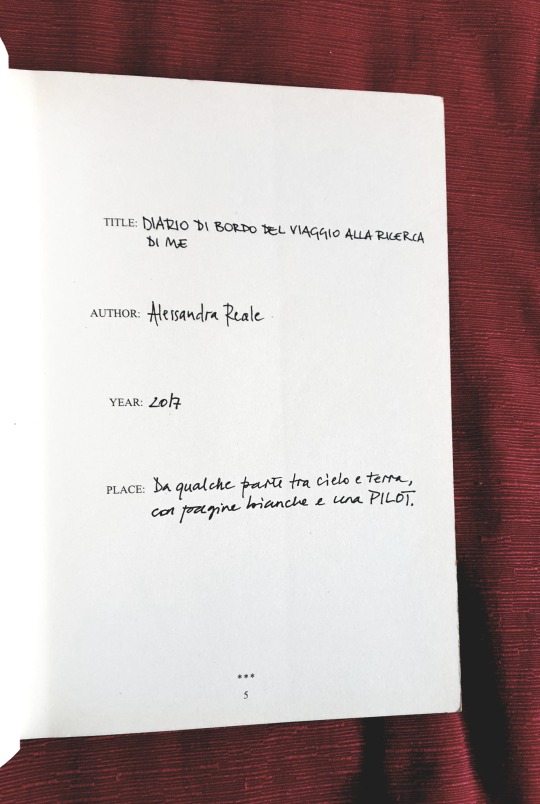 TITLE: DIARIO DI BORDO DEL VIAGGIO ALLA RICERCA
DI ME
AUTHOR: Alessandra Reale
YEAR: 2017
PLACE: Da qualche parte tra cielo e terra,
con pagine bianche e una PILOT.
***
5